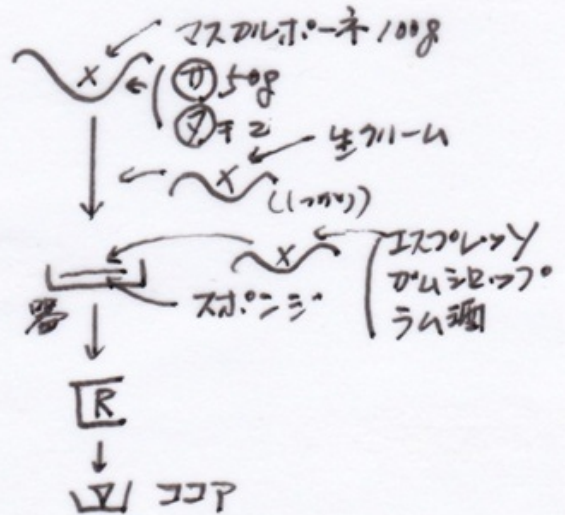 マスカルポーネ 100g
× サ 50g
タマ2
生クリーム
×
(しっかり)
×
エスプレッソ
ガムシロップ
ラム酒
スポンジ
器
R
ココア